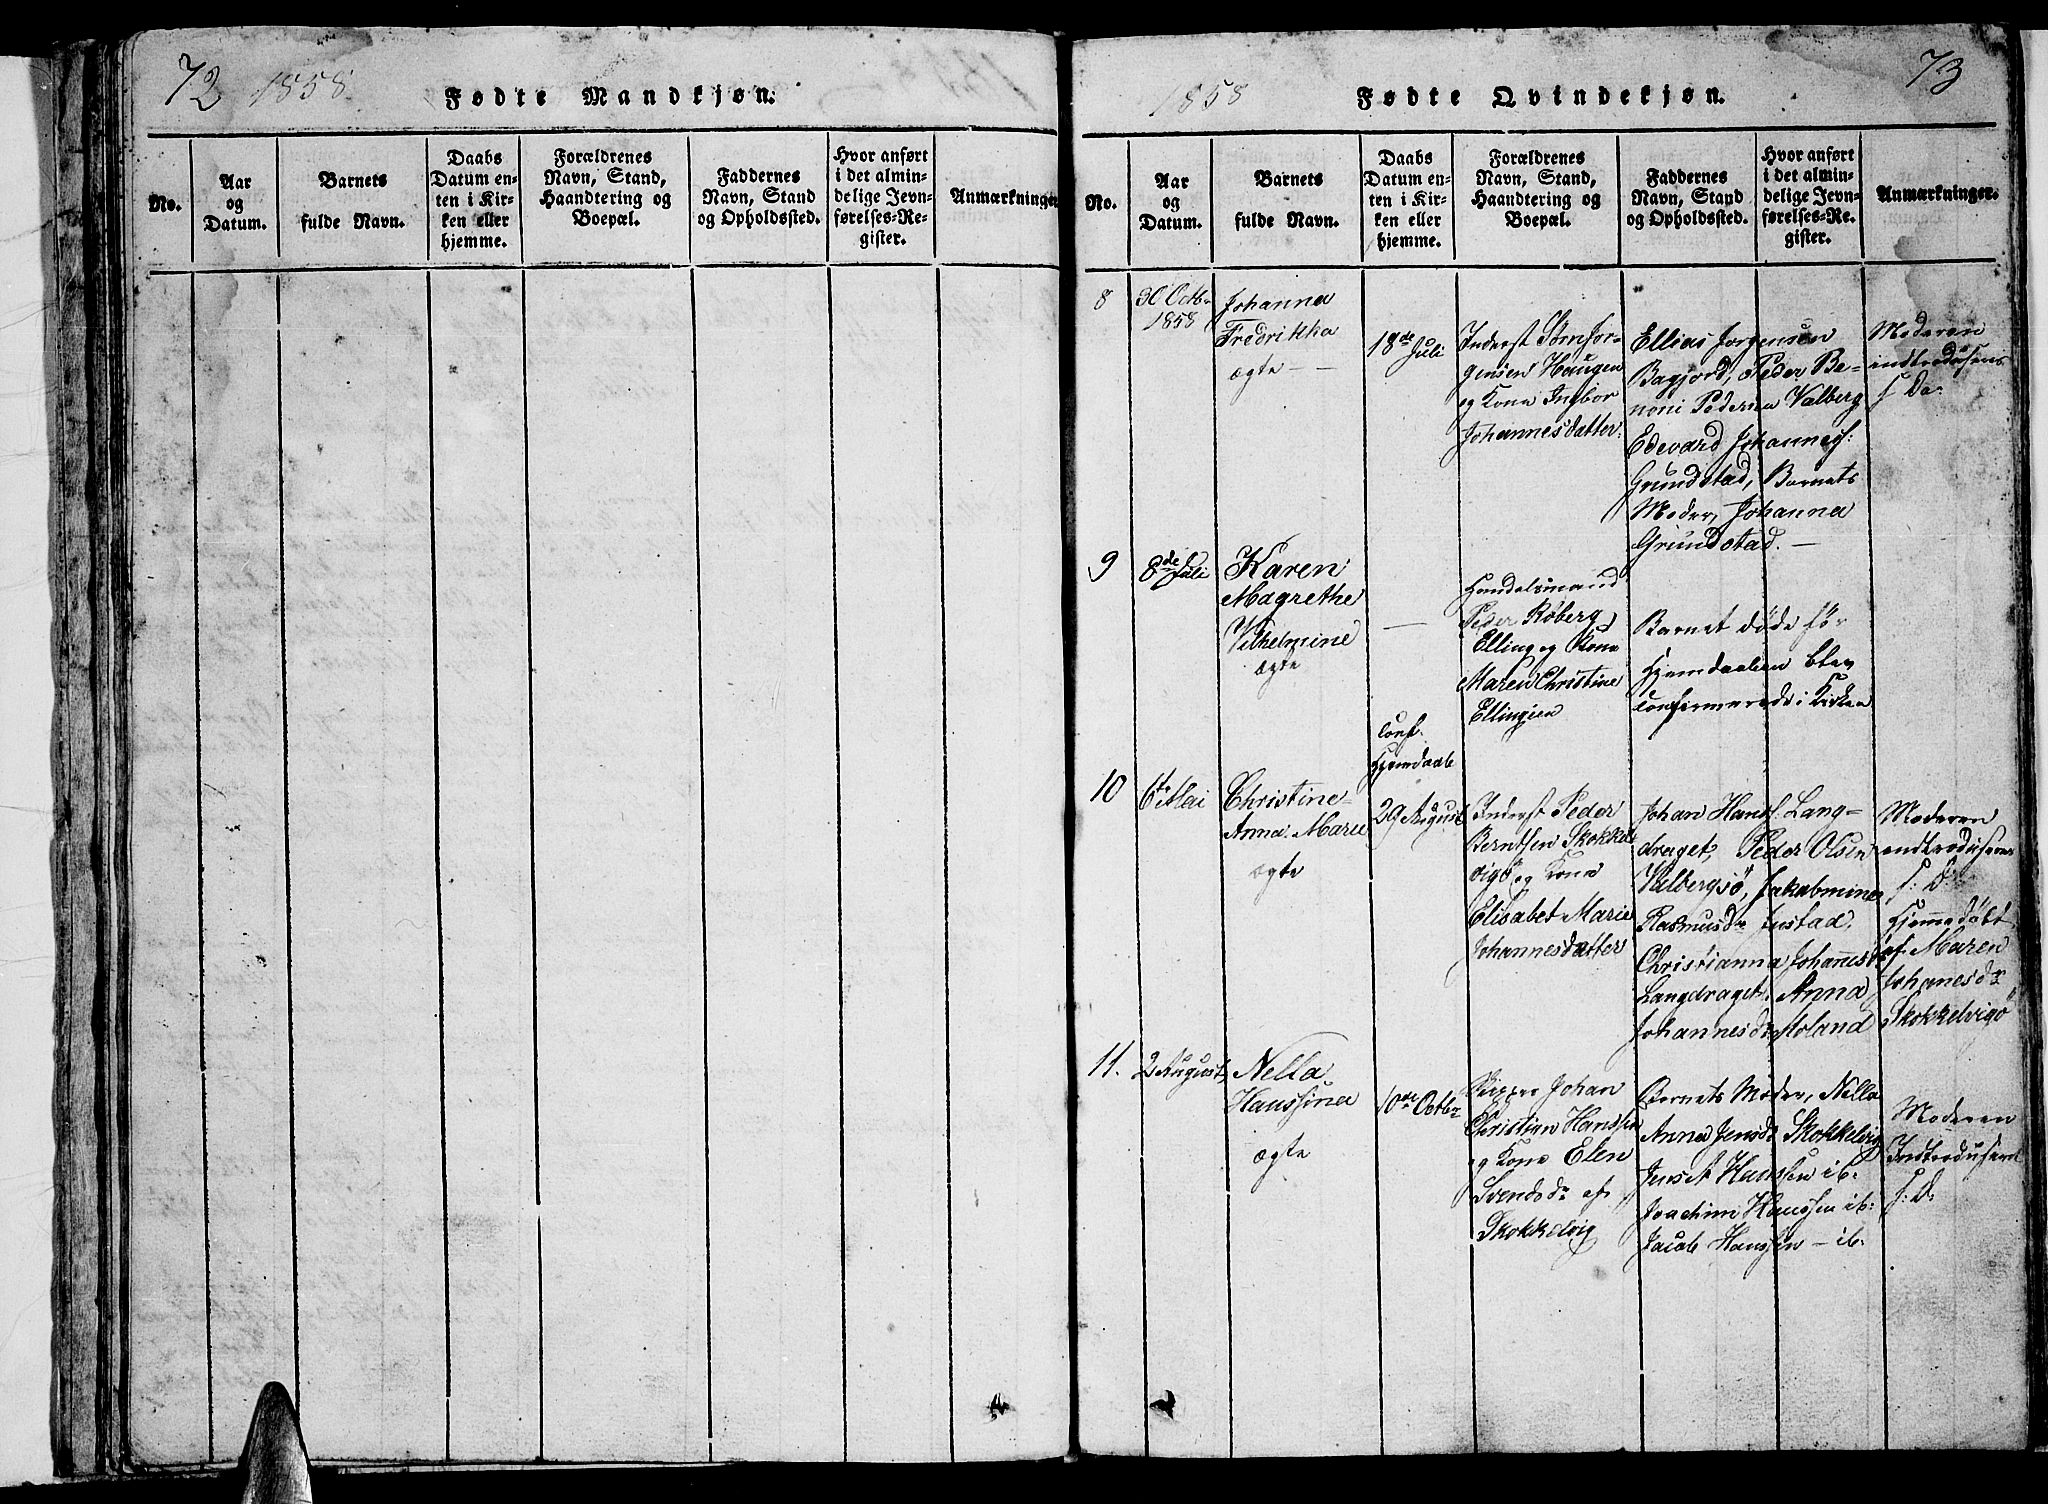 72 1858
Fødte Mandkjøn.
No.
Aar
og
Datum.
Barnets
fulde Navn.
Daabs
Datum en-
ten i Kir-
ken eller
hjemme.
Forældrenes
Navn, Stand,
Haandtering og
Boepæl.
Faddernes
Navn, Stand
og Opholdssted.
Hvor anført
i det almin-
delige Jevn-
førelses-Re-
gister.
Anmærkninger
1858
Fødte Qvindekjøn.
73
No.
Aar
og
Datum.
Barnets
fulde Navn.
Daabs
Datum en-
ten i Kir-
ken eller
hjemme.
Forældrenes
Navn, Stand,
Haandtering og
Boepæl.
Faddernes
Navn, Stand
og Opholdssted.
Hvor anført
i det almin-
delige Jevn-
førelses-Re-
gister.
Anmærkninger.
8
30 Octb.
1858
Johanna
Fredrikka
ægte -
18de Juli
Inderst Sørn Jør-
gensen Haugen
og Kone Ingbor
Johannesdatter.
Ellias Jørgensen
Bagjord, Peder Be-
noni Pedersen Valberg
Edevard Johannes:
Grundstad, Barnets
Moder, Johanna
Grundstad. -
Moderen
indtrodusens
s. Da:
9
8de Juli
Karen
Magrethe
Vilhelmine
ægte
-
Handelsmand
Peder Røberg
Elling og Kone
Maren Christine
Ellingsen
Barnet døde før
Hjemdaaben blev
Confirmerede i Kirken
10
6te Mai
Christine-
Anna Marie
ægte
Conf.
Hjemdaab
29 August
Inderst Peder
Berntsen Skokkel
vigö og Kone
Elisabet Marie
Johannesdatter
Johan Hanss. Lang-
draget, Peder Olsen
Valbergsö, Jakabmine
Rasmusdr Justad,
Christianna Johannesdr
Langdraget, Anna
Johannesdr, Moland
Moderen
indtroduseres
s: D:
Hjemmedøbt
af Maren
Johanesdr
Skokkelvigö
11.
2 August,
Nella
Hanssina
ægte
10de Octbr
Skipper Johan
Christian Hanssen
og Kone Elen
Svendsdr af
Skokkelvig
Barnets Moder, Nella
Anna Jensdr Skokkelvig
Jenset Hanssen ib:
Joachim Hanssen ib:
Jacob Hanssen - ib:
Moderen
Indtroduseret
s: D: